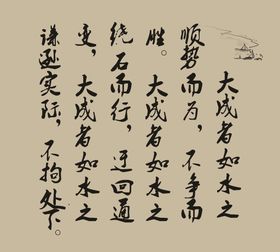 大成者如水之
顺势而为，不争而
胜。大成者如水之
绕石而行，迂回通
变，大成者如水之
谦逊实际，不拘处下。